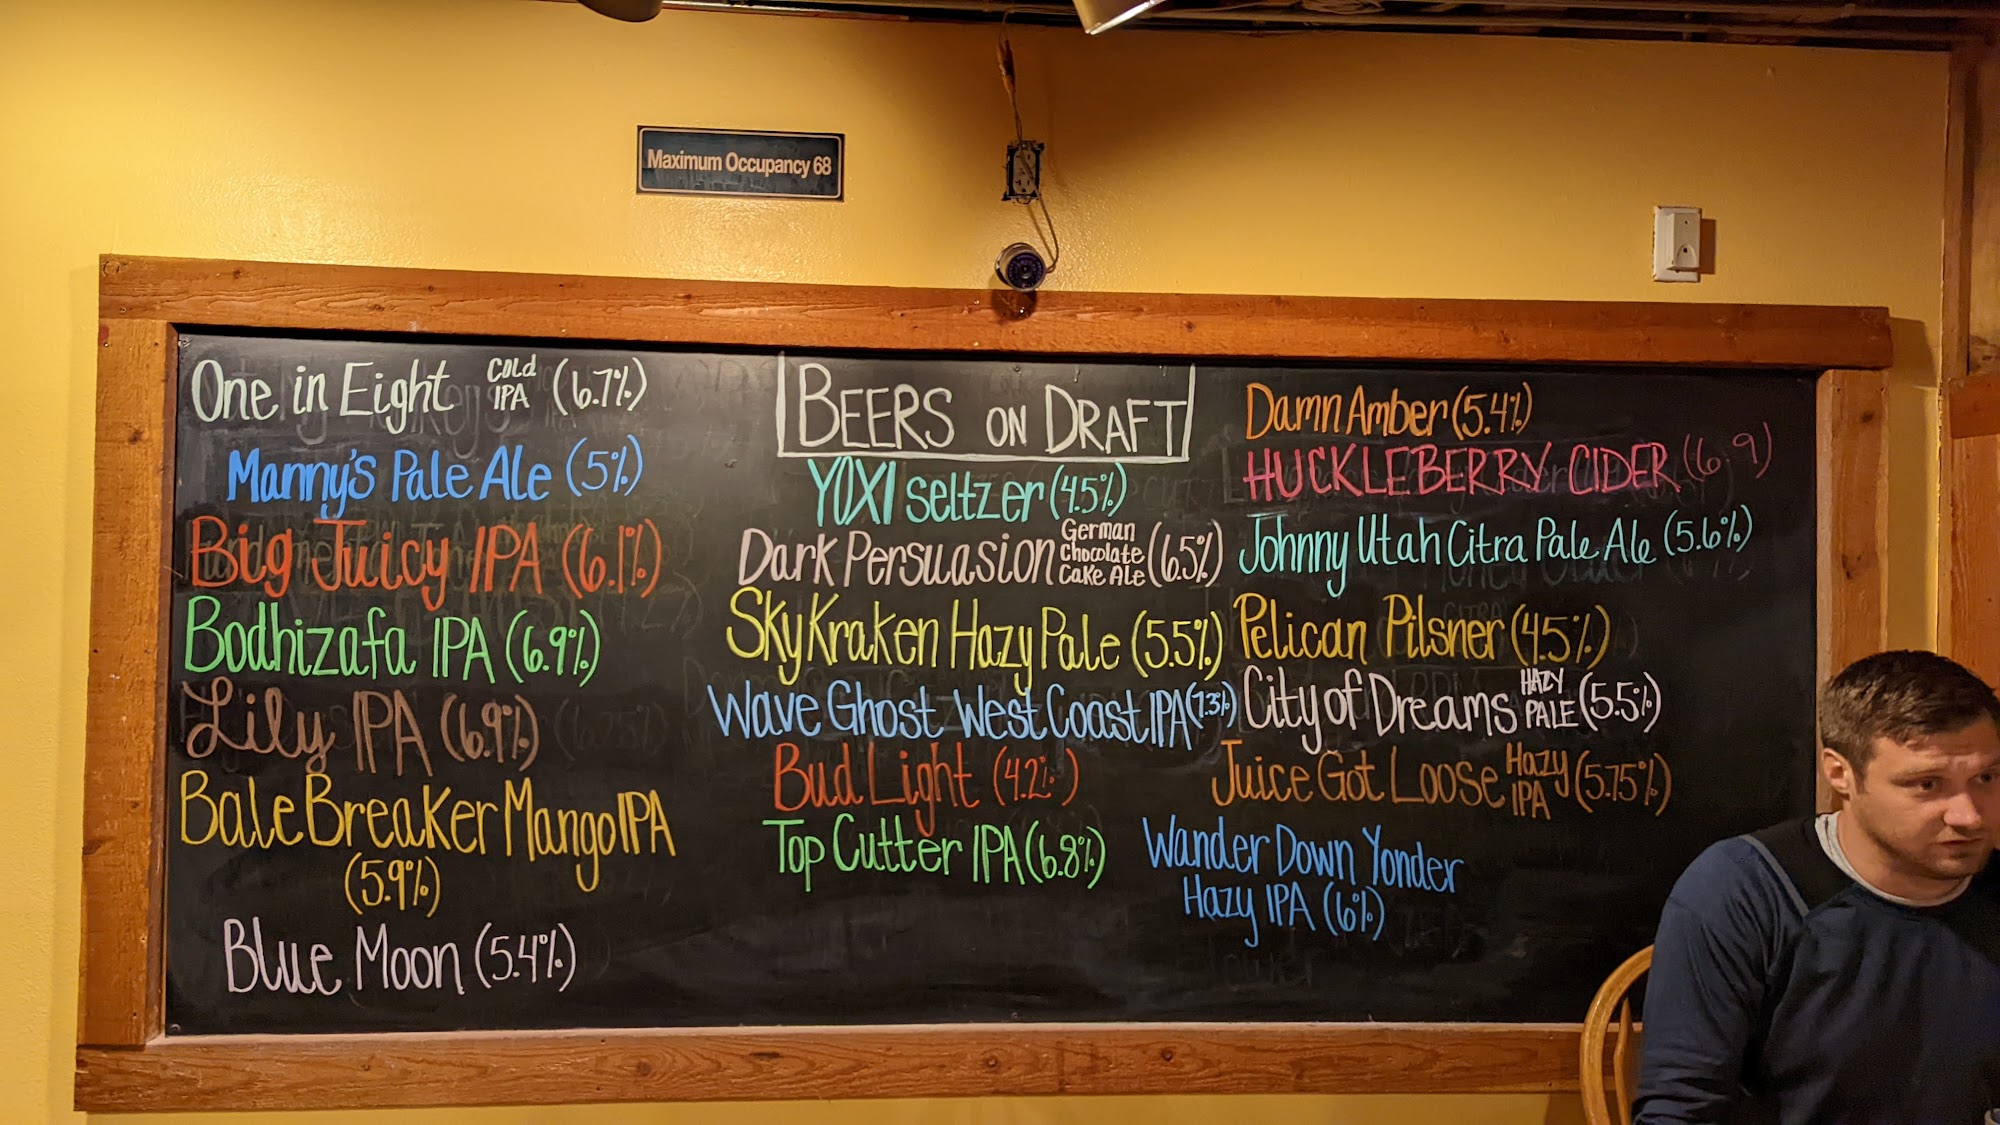 Maximum Occupancy 68
One in Eight COLD IPA (6.7%)
Manny's Pale Ale (5%)
Big Juicy IPA (6.1%)
Bodhizafa IPA (6.9%)
Lily IPA (6.9%)
Bale Breaker Mango IPA
(5.9%)
Blue Moon (5.4%)
BEERS ON DRAFT
YOXI seltzer (4.5%)
Dark Persuasion German Chocolate Cake Ale (6.5%)
Sky Kraken Hazy Pale (5.5%)
Wave Ghost West Coast IPA (7.3%)
Bud Light (4.2%)
Top Cutter IPA (6.8%)
Damn Amber (5.4%)
HUCKLEBERRY CIDER (6.9)
Johnny Utah Citra Pale Ale (5.6%)
Pelican Pilsner (4.5%)
City of Dreams HAZY PALE (5.5%)
Juice Got Loose Hazy IPA (5.75%)
Wander Down Yonder
Hazy IPA (6%)